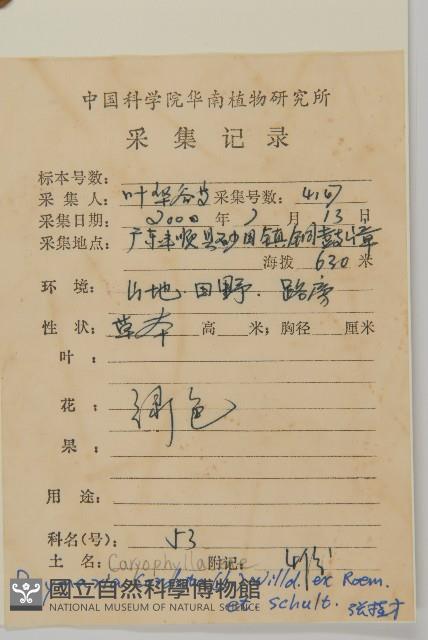 中国科学院华南植物研究所
采集记录
标本号数：
采集人：叶华谷 采集号数：
采集日期：2000 年 7 月 13 日
采集地点：广东丰顺县砂田镇铜鼓嶂
海拨 630 米
环境：山地. 田野. 路旁
性状：草本 高 米；胸径 厘米
叶：
花：绿色
果：
用途：
科名(号)：53
土名：Caryophyllaceae 附记：
(L.) Willd. ex Roem.
et Schult.
國立自然科學博物館
NATIONAL MUSEUM OF NATURAL SCIENCE